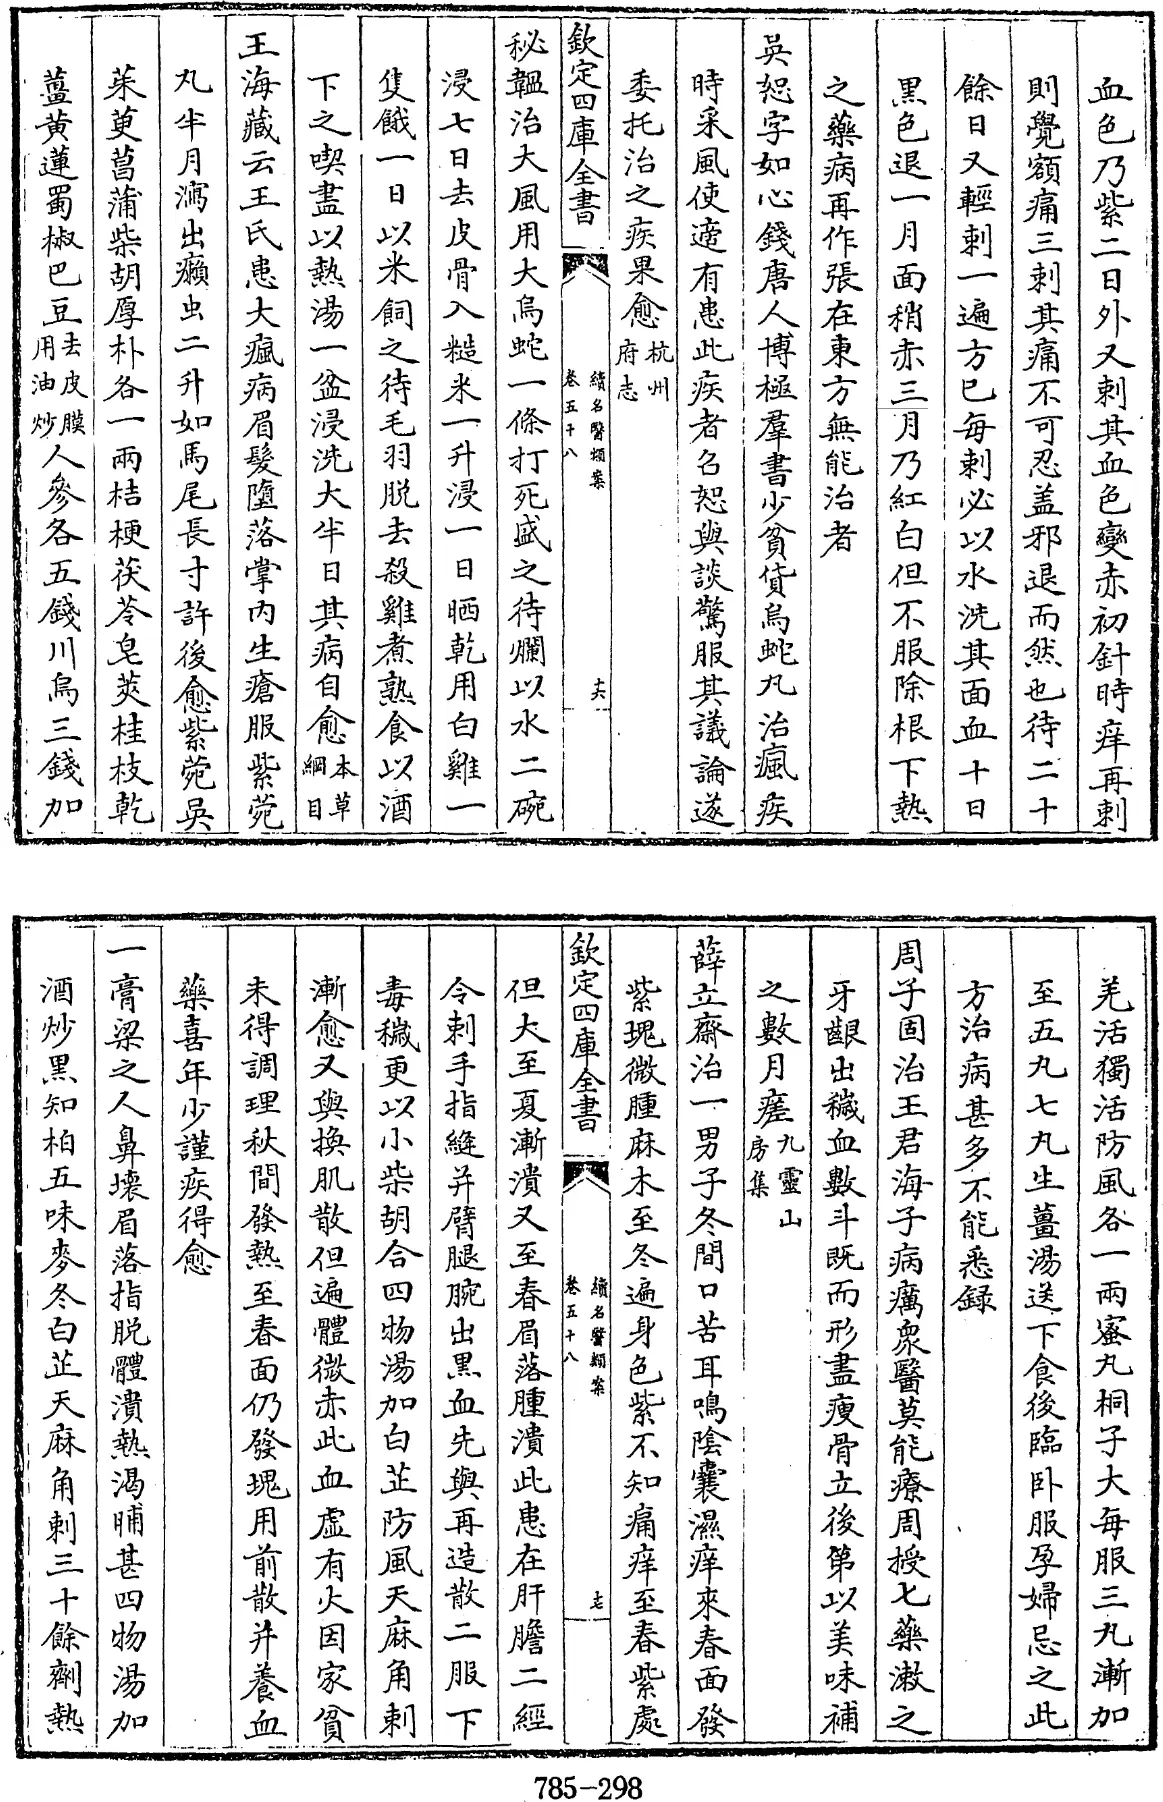 血色乃紫二日外又刺其血色變赤初針時痒再刺
則覺額痛三刺其痛不可忍盖邪退而然也待二十
餘日又輕刺一遍方已每刺必以水洗其面血十日
黒色退一月面稍赤三月乃紅白但不服除根下熱
之藥病再作張在東方無能治者
吳恕字如心錢唐人博極羣書少貧貨烏蛇丸治瘋疾
時采風使適有患此疾者召恕與談驚服其議論遂
委托治之疾果愈杭州府志
欽定四庫全書
續名醫類案
卷五十八
十六
秘韞治大風用大烏蛇一條打死盛之待爛以水二碗
浸七日去皮骨入糙米一升浸一日晒乾用白雞一
隻餓一日以米飼之待毛羽脱去殺雞煮熟食以酒
下之喫盡以熱湯一盆浸洗大半日其病自愈本草綱目
王海藏云王氏患大瘋病眉髮墮落掌内生瘡服紫菀
丸半月瀉出癩虫二升如馬尾長寸許後愈紫菀吳
茱萸菖蒲柴胡厚朴各一兩桔梗茯苓皂莢桂枝乾
薑黄蓮蜀椒巴豆去皮膜用油炒人參各五錢川烏三錢加
羌活獨活防風各一兩蜜丸桐子大每服三丸漸加
至五丸七丸生薑湯送下食後臨卧服孕婦忌之此
方治病甚多不能悉録
周子固治王君海子病癘衆醫莫能療周授七藥漱之
牙齦出穢血數斗既而形盡瘦骨立後第以美味補
之數月瘥九靈山房集
薛立齋治一男子冬間口苦耳鳴陰囊濕痒來春面發
紫塊微腫麻木至冬遍身色紫不知痛痒至春紫處
欽定四庫全書
續名醫類案
卷五十八
十七
但大至夏漸潰又至春眉落腫潰此患在肝膽二經
令刺手指縫并臂腿腕出黒血先與再造散二服下
毒穢更以小柴胡合四物湯加白芷防風天麻角刺
漸愈又與換肌散但遍體微赤此血虛有火因家貧
未得調理秋間發熱至春面仍發塊用前散并養血
藥喜年少謹疾得愈
一膏粱之人鼻壊眉落指脱體潰熱渴晡甚四物湯加
酒炒黒知柏五味麥冬白芷天麻角刺三十餘劑熱
785-298